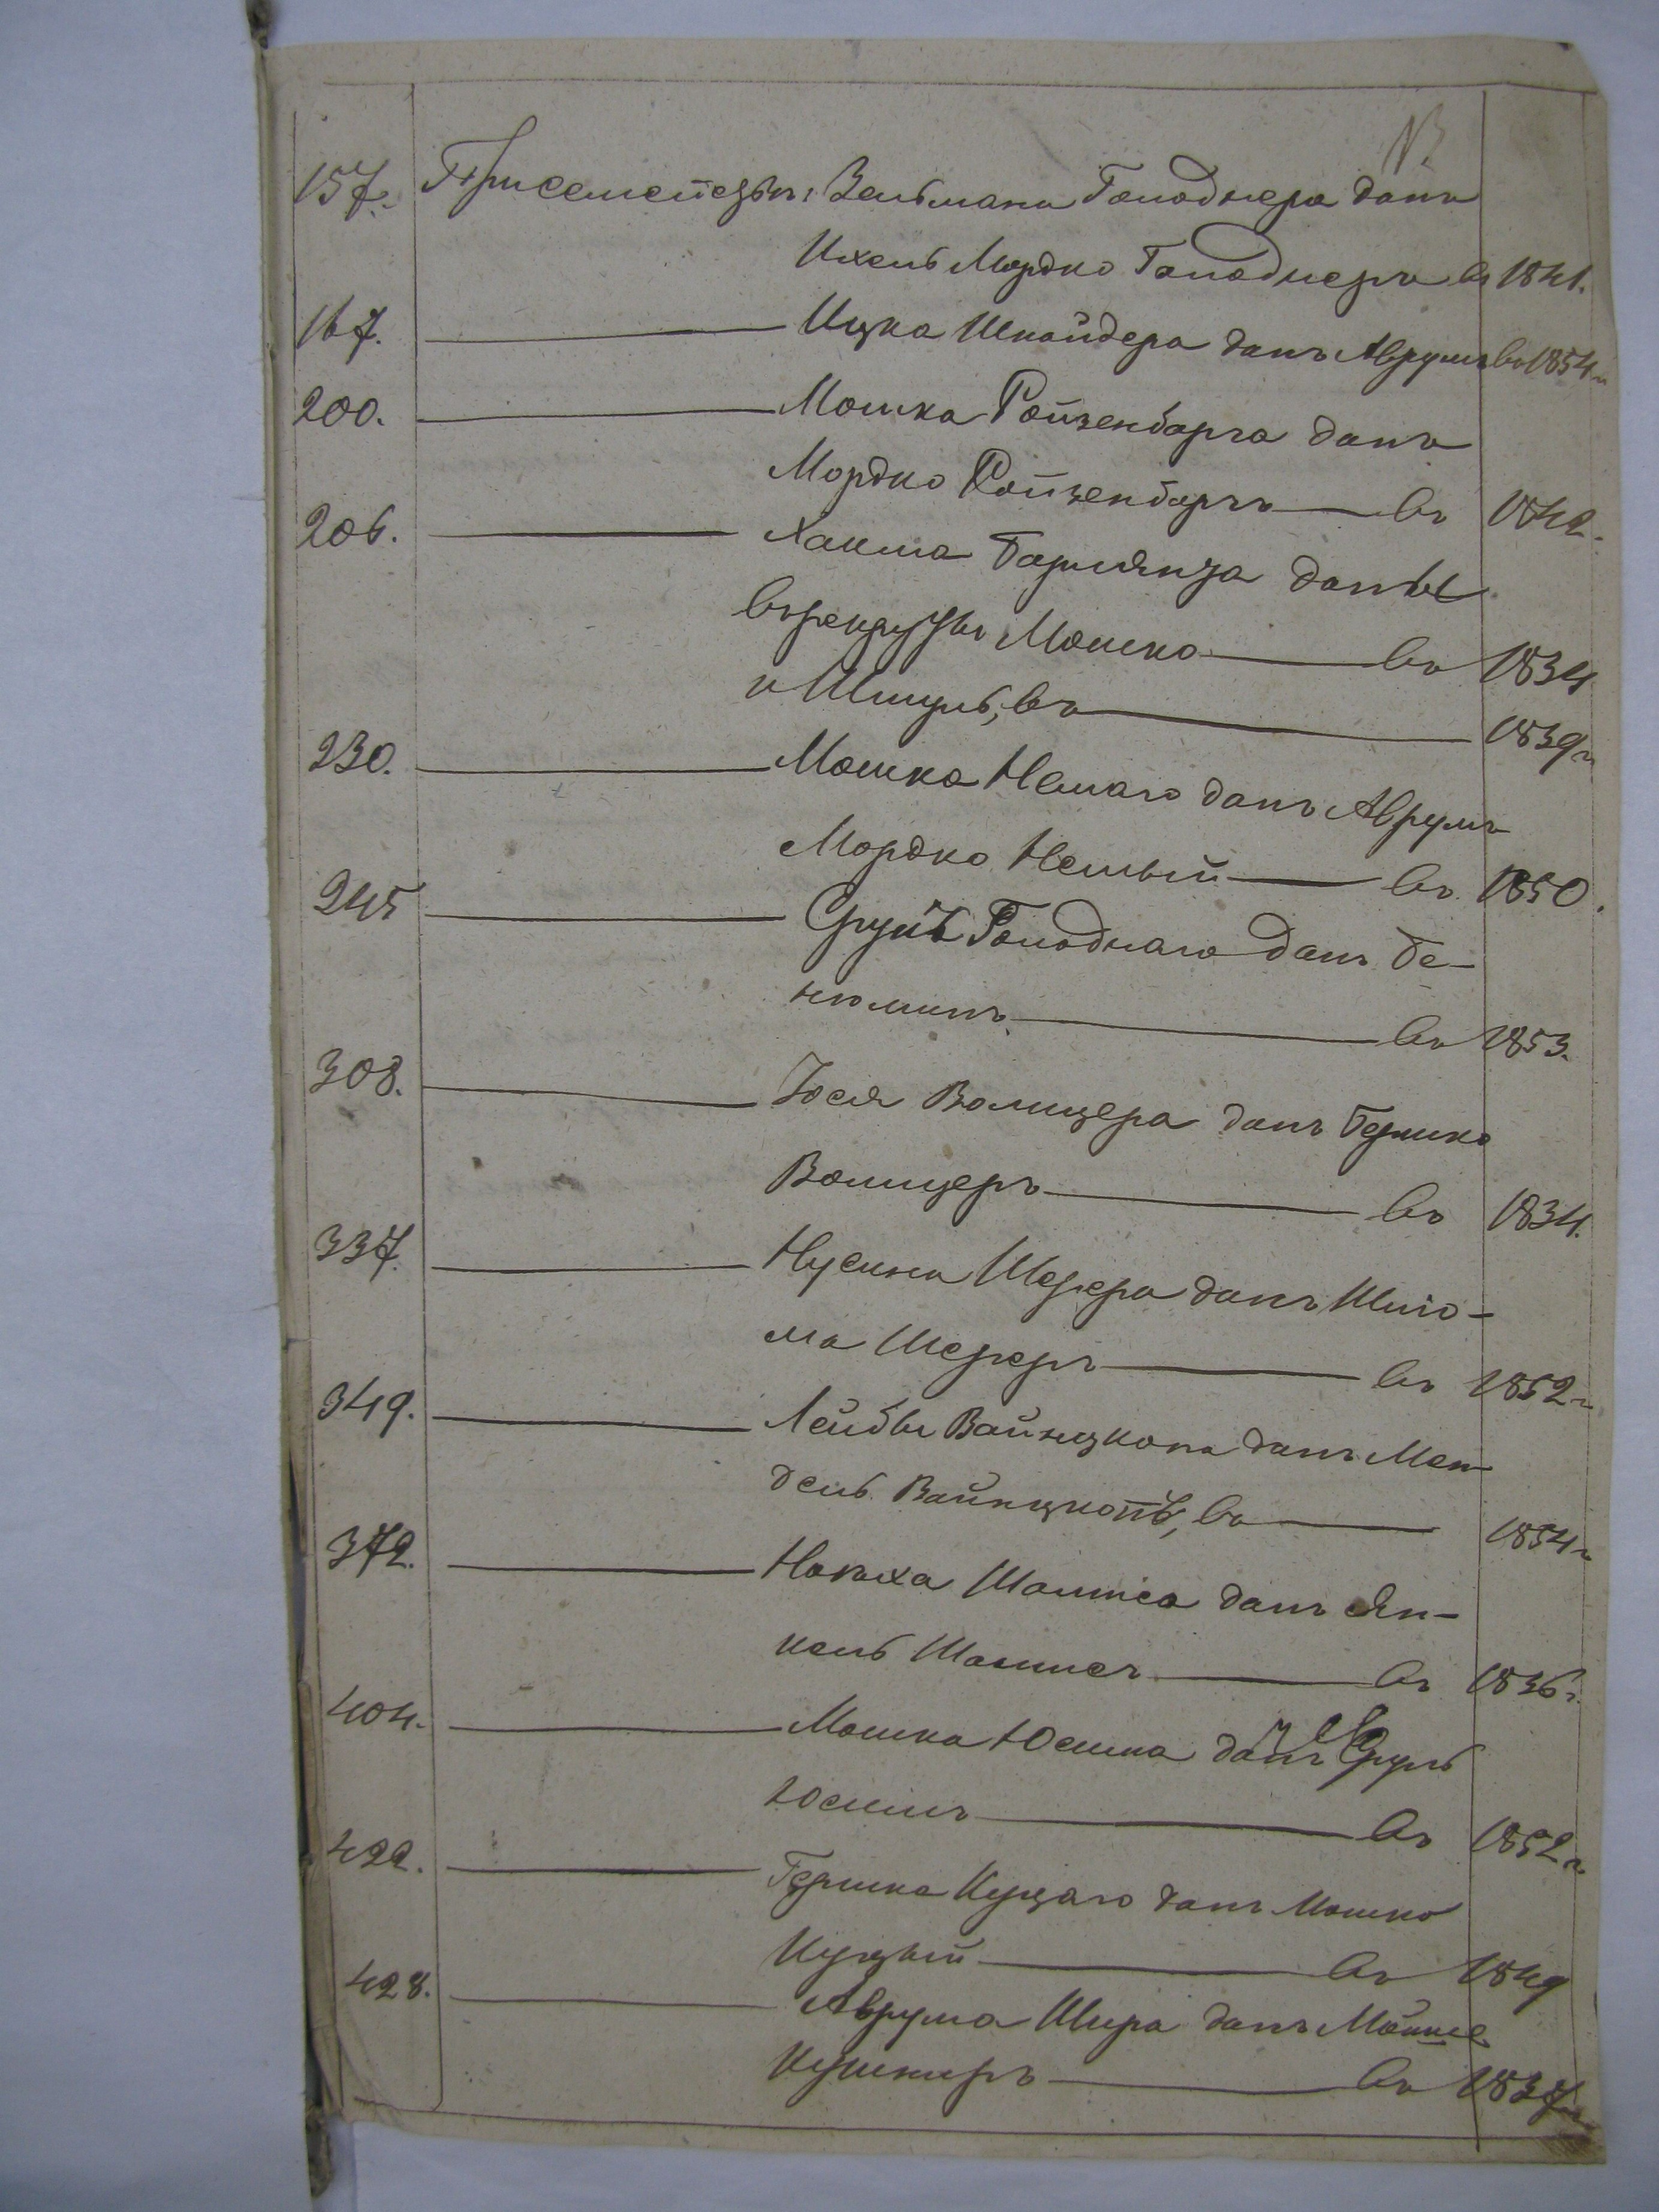 157. При семействѣ: Зельмана Голоднера данъ
Ихель Мордко Голоднеръ въ 1841.
167. Ицка Шнайдера данъ Аврумъ въ 1854 г.
200. Мошка Ройзенбарга данъ
Мордко Ройзенбаргъ въ 1842.
206. Хаима даны
въ рекруты Мошко въ 1834
и Шмуль, въ 1839 г.
230. Мошка Немаго данъ Аврумъ
Мордко Немый въ 1850.
245 Сруля Голоднаго данъ Бе-
нюминъ въ 1853.
308. Іося данъ Гершко
въ 1834.
337. Нусина Шерера данъ Шлió-
ма Шереръ въ 1852 г.
349. Лейбы Вайнцкопа данъ Мен-
дель Вайнцкопъ, въ 1854 г.
372. данъ Ян-
кель въ 1836 г.
404. Мошка Юсима данъ Сруль
Юсимъ въ 1852 г.
422. Гершка Куцаго данъ Мошко
Куцый въ 1849
428. Аврума Шира данъ
Кушниръ въ 1837 г.